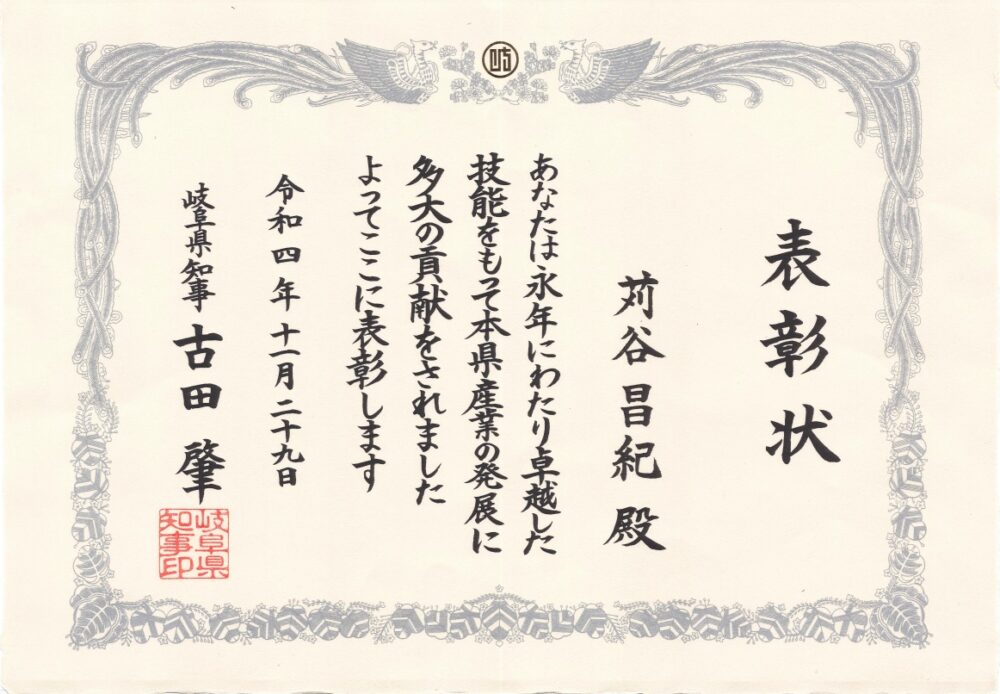 表彰状
苅谷昌紀殿
あなたは永年にわたり卓越した
技能をもって本県産業の発展に
多大の貢献をされました
よってここに表彰します
令和四年十一月二十九日
岐阜県知事 古田肇
岐阜県
知事印